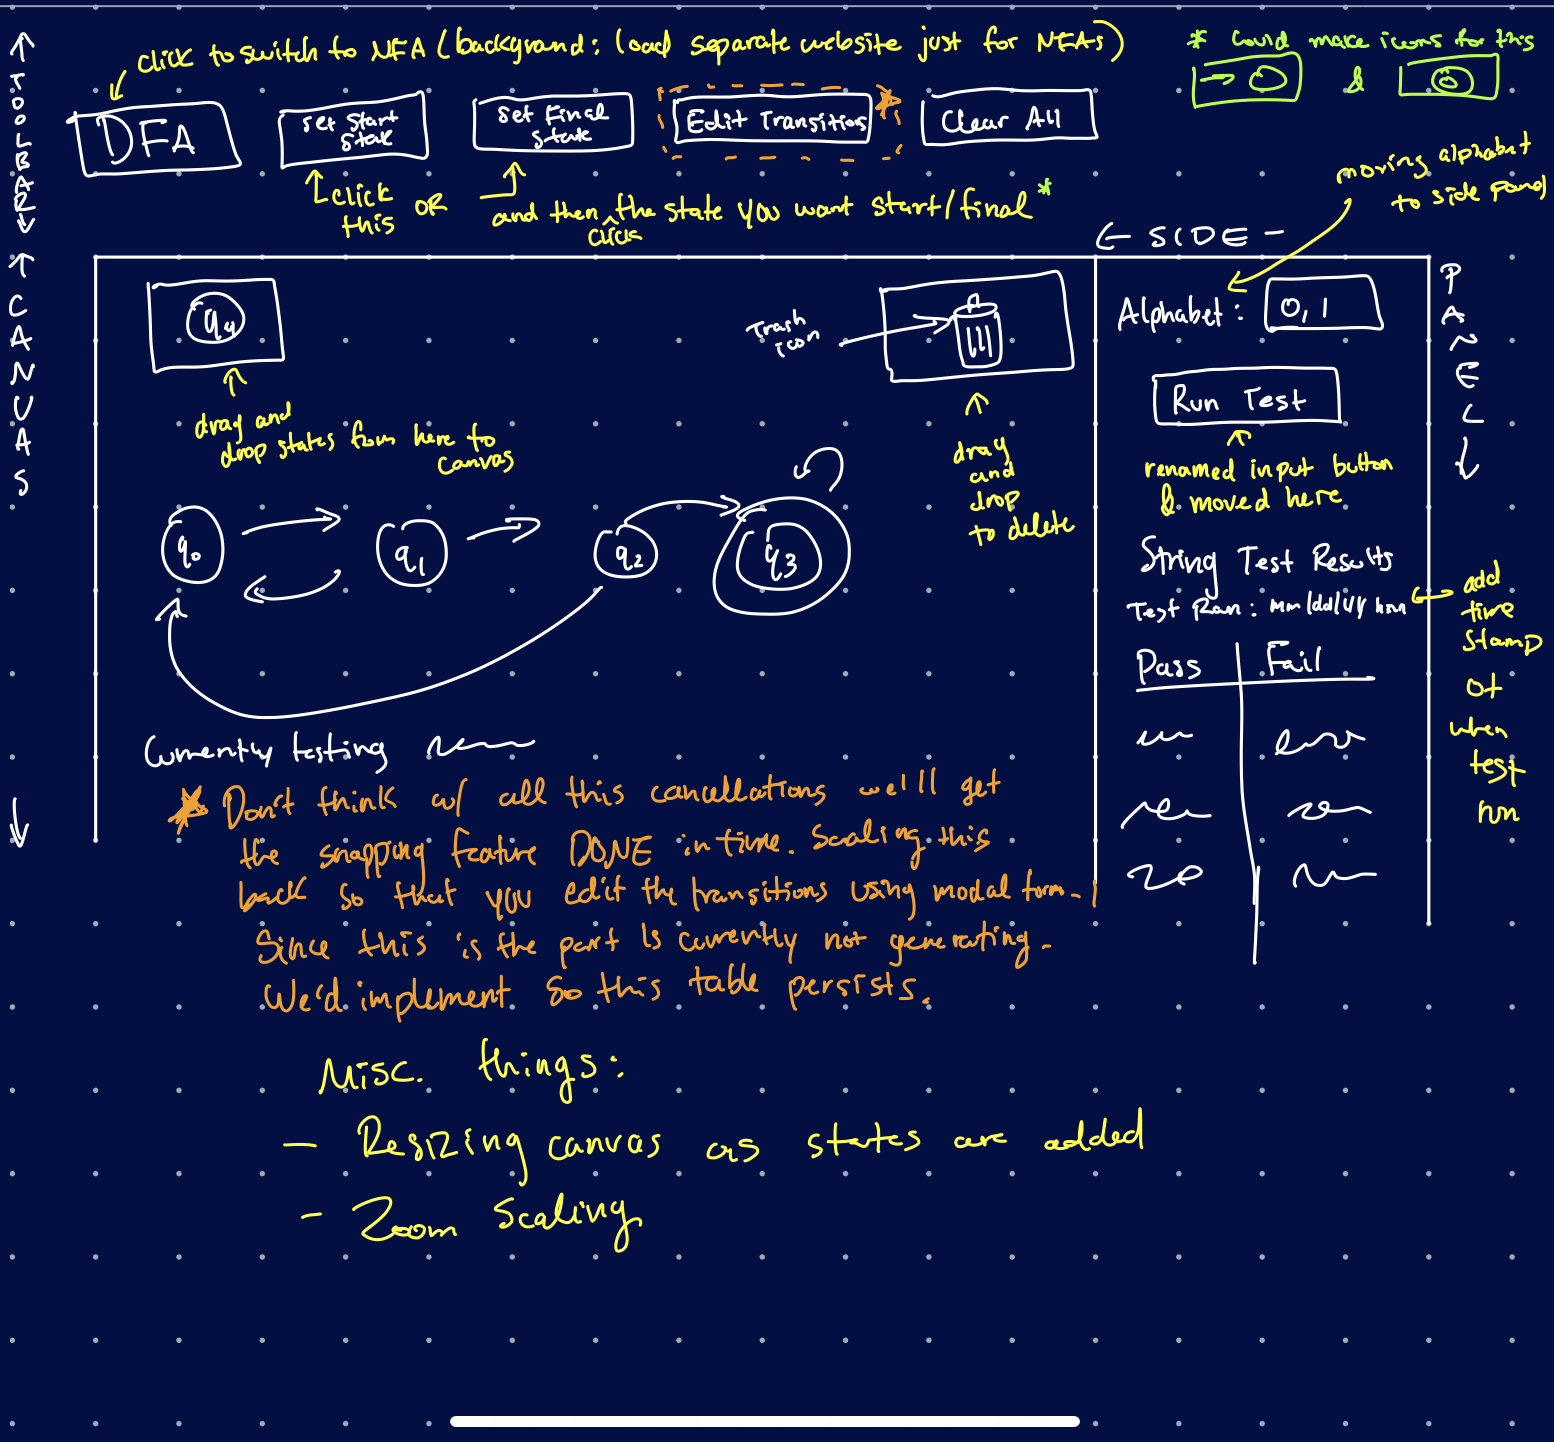 click to switch to NFA (background: load separate website just for NFAs)
* Could make icons for this
&
TOOLBAR
DFA
Set Start
State
Set Final
State
Edit Transition
Clear All
click
this
OR
and then the state you want start/final *
click
moving alphabet
to side panel
SIDE
PANEL
CANVAS
q4
drag and
drop states from here to
canvas
Trash
icon
drag
and
drop
to delete
q0
q1
q2
q3
Currently testing
Alphabet: 0,1
Run Test
renamed input button
& moved here
String Test Results
Test Ran: mm/dd/yy
add
time
stamp
of
when
test
run
Pass
Fail
Don't think w/ all this cancellations we'll get
the snapping feature DONE in time. Scaling this
back so that you edit the transitions using modal form.
Since this is the part is currently not generating.
We'd implement so this table persists.
Misc. things:
- Resizing canvas as states are added
- Zoom Scaling